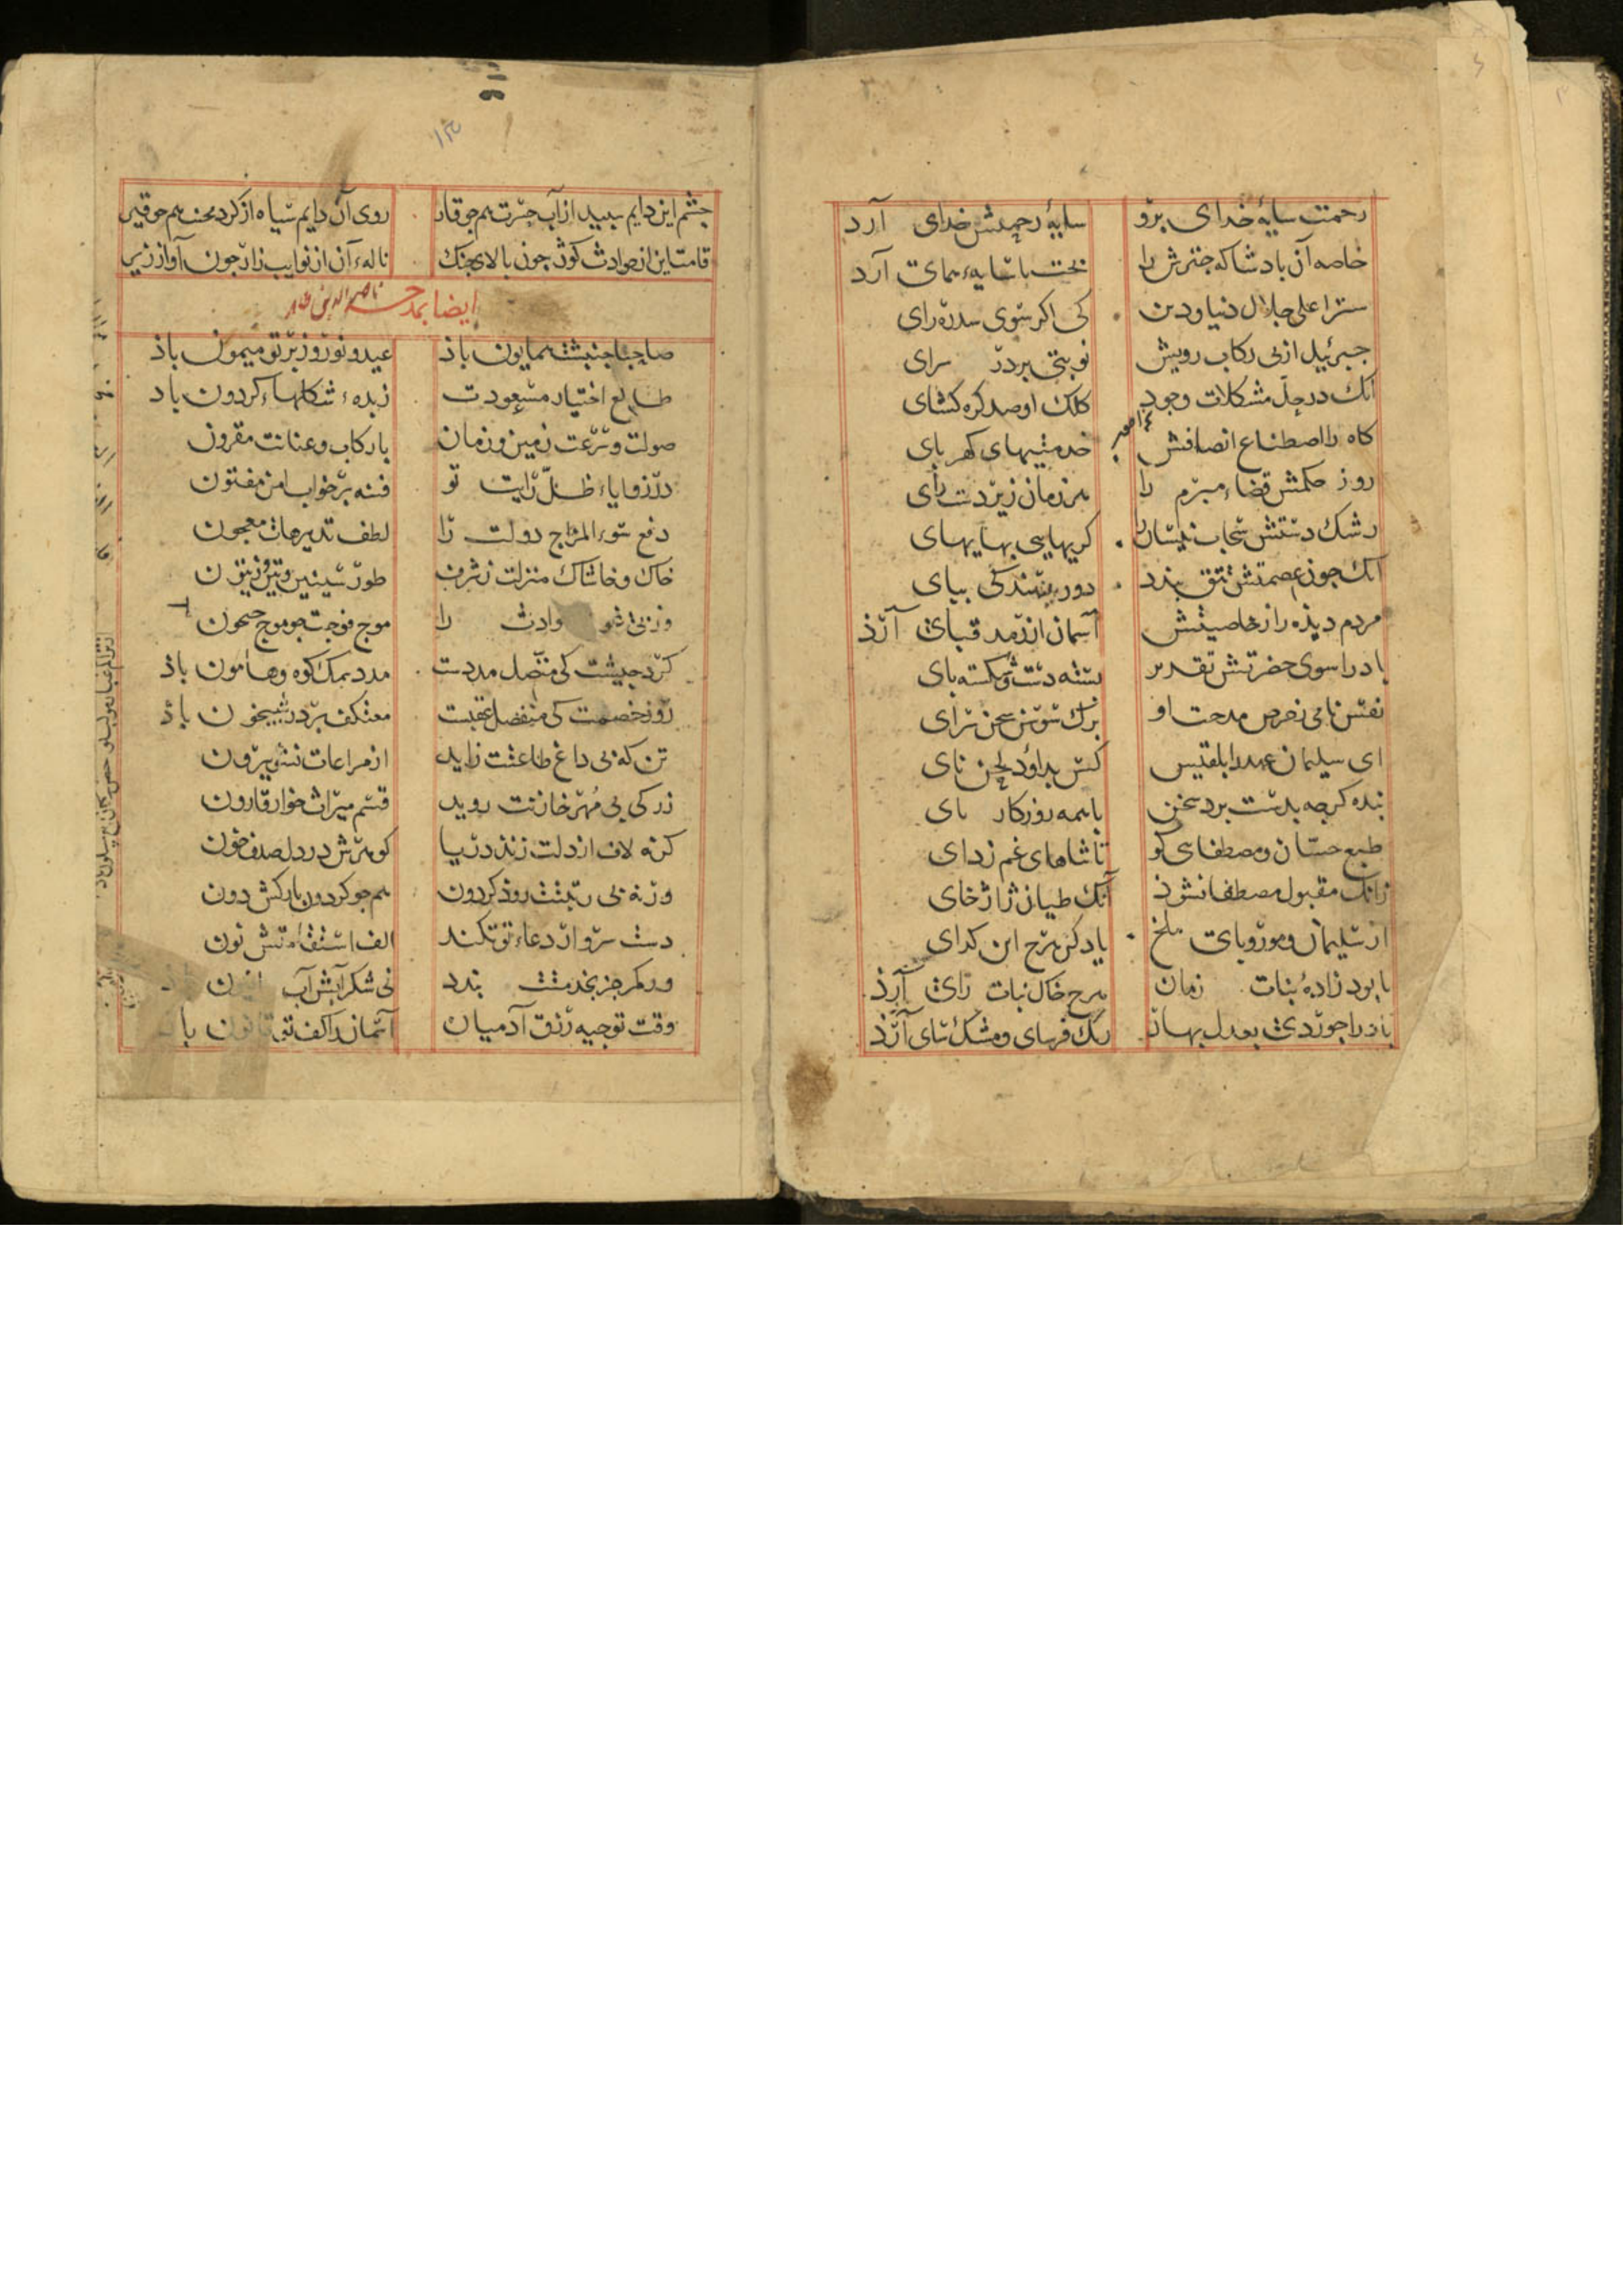 رحمت سایهٔ خدای برو سایهٔ رحمتش خدای آرد
خاصه آن بادشا که جترش را بخت با سایهء همای آرد
ستر اعلی جلال دنیا و دین کی اکر سوی سدره رای
جبرئیل از بی رکاب رویش نوبتی بر در سرای
آنک در حل مشکلات وجود کلک او صد کره کشای
کاه را اصطناع انصافش خدمتیهای کهربای
روز حکمش قضاء مبرم را هر زمان زیر دست رای
رشک دستش سحاب نیسان را کریهایی بهایهای
آنک جون عصمتش تتق بندد دور بیند کی بیای
مردم دیده را ز خاصیتش آسمان از زمرد قبای آرذ
باد را سوی حضرتش تقدیر بسته دست و شکسته بای
نفس نامی ز حرص مدحت او برک سوسن سخن سرای
ای سلیمان عهد را بلقیس کس بداود لحن نای
بنده کرجه بدست برد سخن با همه روزکار بای
طبع حسان و مصطفایی کو تا ثناهای غم زدای
زانک مقبول مصطفا نشوذ آنک طیان ژاژخای
از سلیمان و مور و بای ملخ یاد کن هرج این کدای
تا بود زادهٔ بنات زمان هرج خاک نبات زای آرذ
باد را جود دی بعدل بهار رنک فرسای و مشک سای آرذ
۱۵
جشم این دایم سبید از آب حسرت هم جو قار روی آن دایم سیاه از کرد محنت هم جو قیر
قامت این از حوادث کوژ جون بالای جنک نالهء آن از نوایب زار جون آواز زیر
ایضا بمدح ناصر الدین
صاحبا جنبشت همایون باذ عید و نوروز بر تو میمون باذ
طالع اختیار مسعودت زبدهء شکلهاء کردون باد
صولت و سرعت زمین و زمان با رکاب و عنانت مقرون
در زوایاء ظل رایت تو فتنه بر خواب امن مفتون
دفع سوء المزاج دولت را لطف تدبیرهات معجون
خاک و خاشاک منزلت ز شرف طور سینین و تین و زیتون
وز بی حوادث را موج فوجت جو موج جیحون
کرد جیشت کی متصل مددست مدد یمک کوه و هامون باذ
روز خصمت کی منفصل عقبست معتکف بر در شبیخون باذ
تن که بی داغ طاعتت زاید از مراعات نشو بیرون
زر کی بی مهر خازنت روید قسم میراث خوار قارون
کر نه لاف از دلت زند دریا کوهرش در دل صدف خون
ور نه بی رتبتت روذ کردون هم جو کردون بارکش دون
دست سرو ار دعاء تو نکند الف استقامتش نون
ور کمر جز بخدمتت بندد نی شکر آبش آب
وقت توجیه رزق آدمیان آسمان را کفت قانون باذ